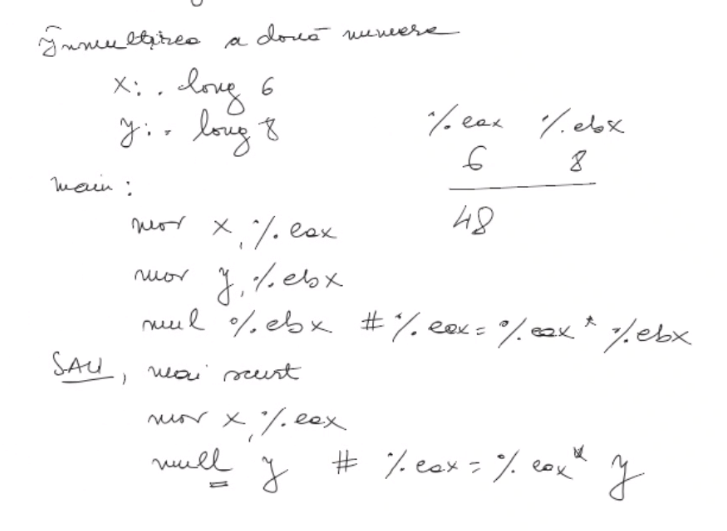 Înmulțirea a două numere
x: .long 6
y: .long 8
%eax %ebx
6 8
main:
48
mov x, %eax
mov y, %ebx
mul %ebx # %eax = %eax * %ebx
SAU, mai scurt
mov x, %eax
mull y # %eax = %eax * y